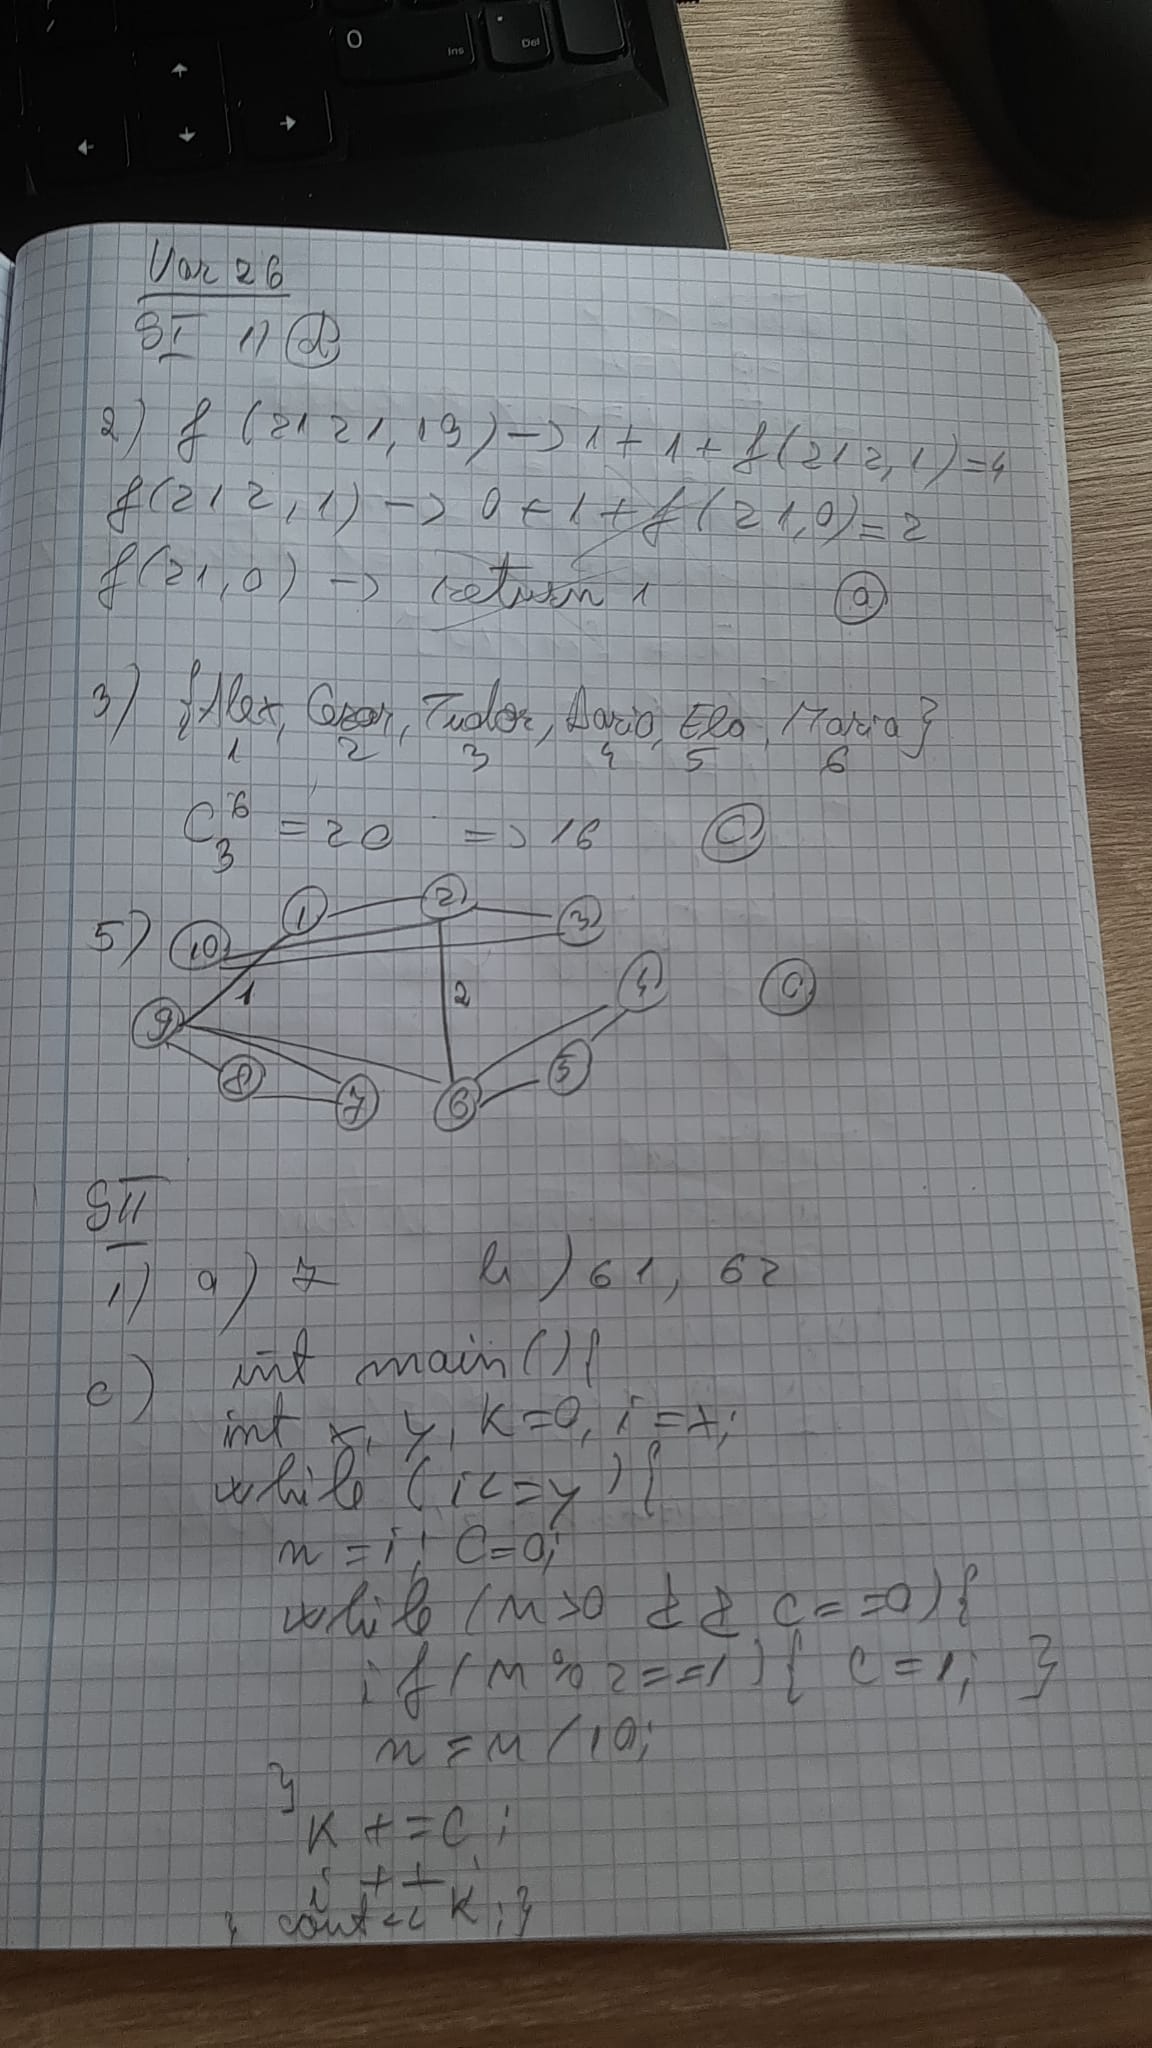 O
Ins
Del
Var 26
SI 1) d
2) f (2121, 19) -> 1 + 1 + f(212, 1) = 4
f(212, 1) -> 0 + 1 + f(21, 0) = 2
f(21, 0) -> return 1 a
3) {Alex, Cezar, Tudor, Daria, Ela, Maria}
1 2 3 4 5 6
C 6 3 = 20 => 16 C
5) 10 1 2 3
9 1 2 4 C
8 7 6 5
SII
1) a) 7 b) 61, 62
c) int main(){
int x, y, k=0, i=x;
while (i<=y){
n = i; C=0;
while (n>0 && C==0){
if (n%2==1){ C=1; }
n = n/10;
}
k += C;
i++;
} cout<<k;}